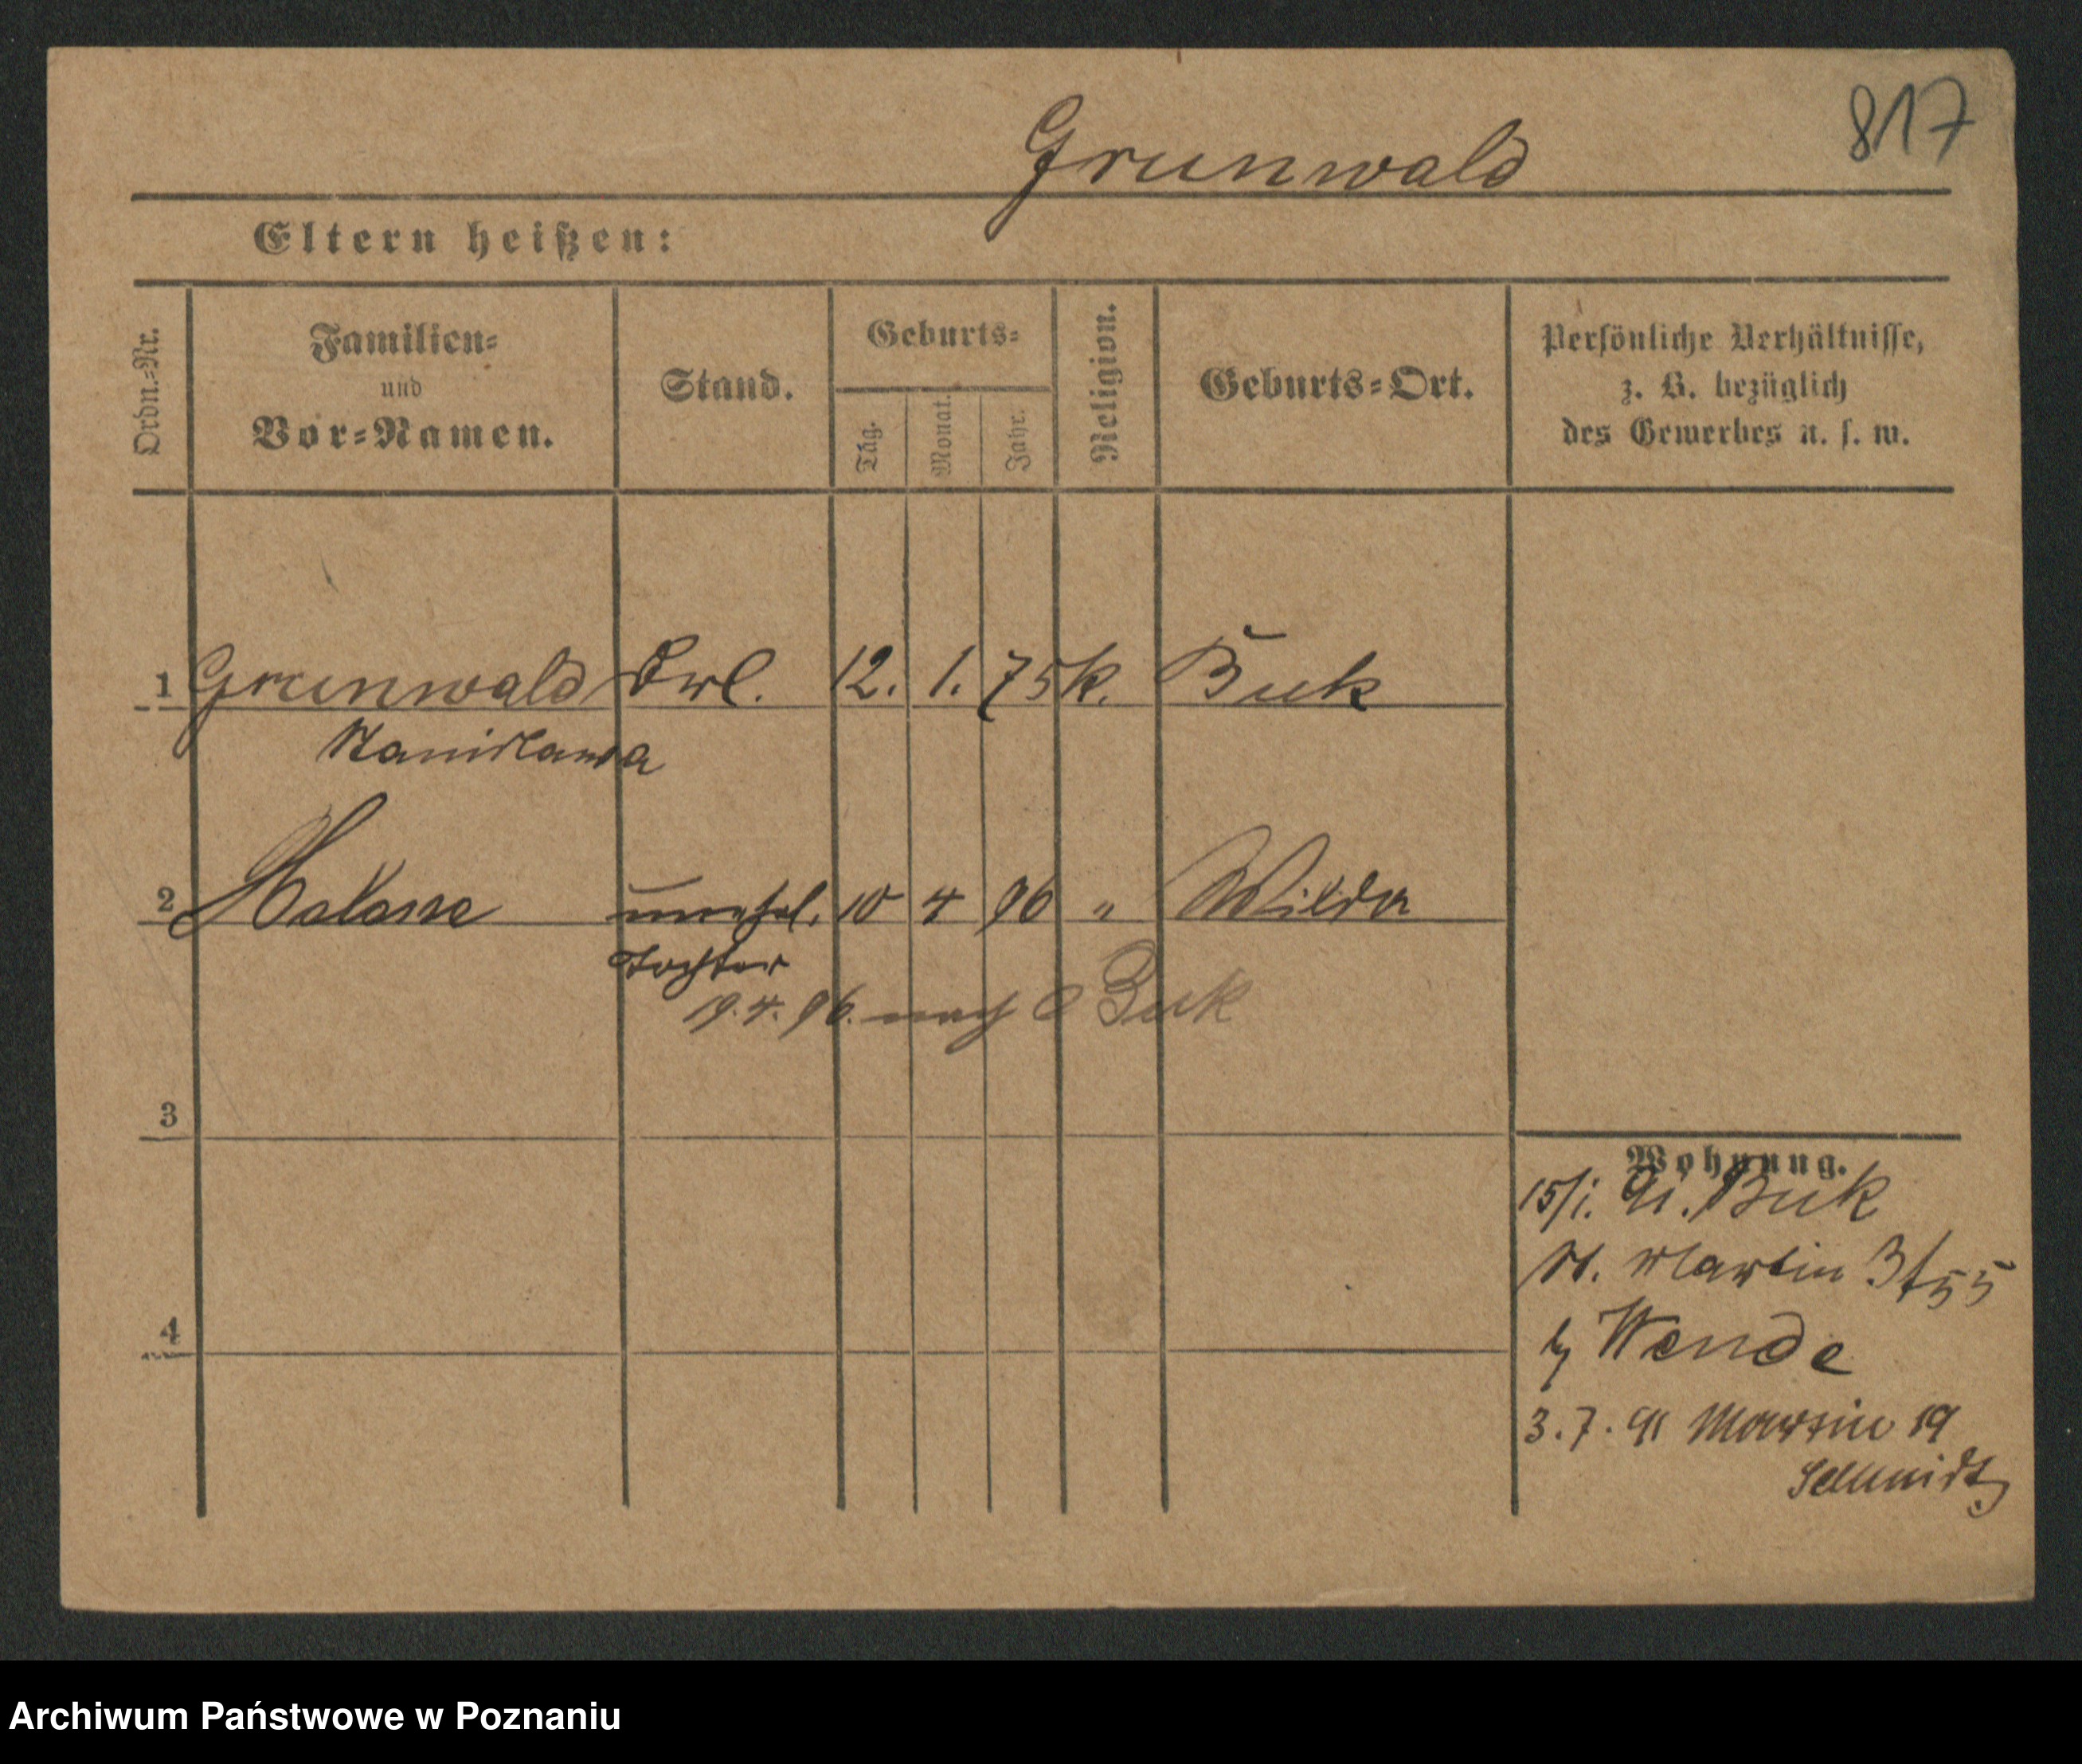 817
Grunwald
Eltern heißen:
Ordn.-Nr.
Familien-
und
Vor-Namen.
Stand.
Geburts-
Tag.
Monat.
Jahr.
Religion.
Geburts-Ort.
Persönliche Verhältnisse,
z. B. bezüglich
des Gewerbes u. s. w.
1 Grunwald 12. 1. 75 k. Buk
Stanislawa
2 unehel. 10 4 96 " Wilda
Tochter
19.4.96. nach Buk
3
Wohnung.
15/1. 91. Buk
St. Martin 3/55
b/ Wende
4
3.7.91 Martin 19
Schmidt
Archiwum Państwowe w Poznaniu